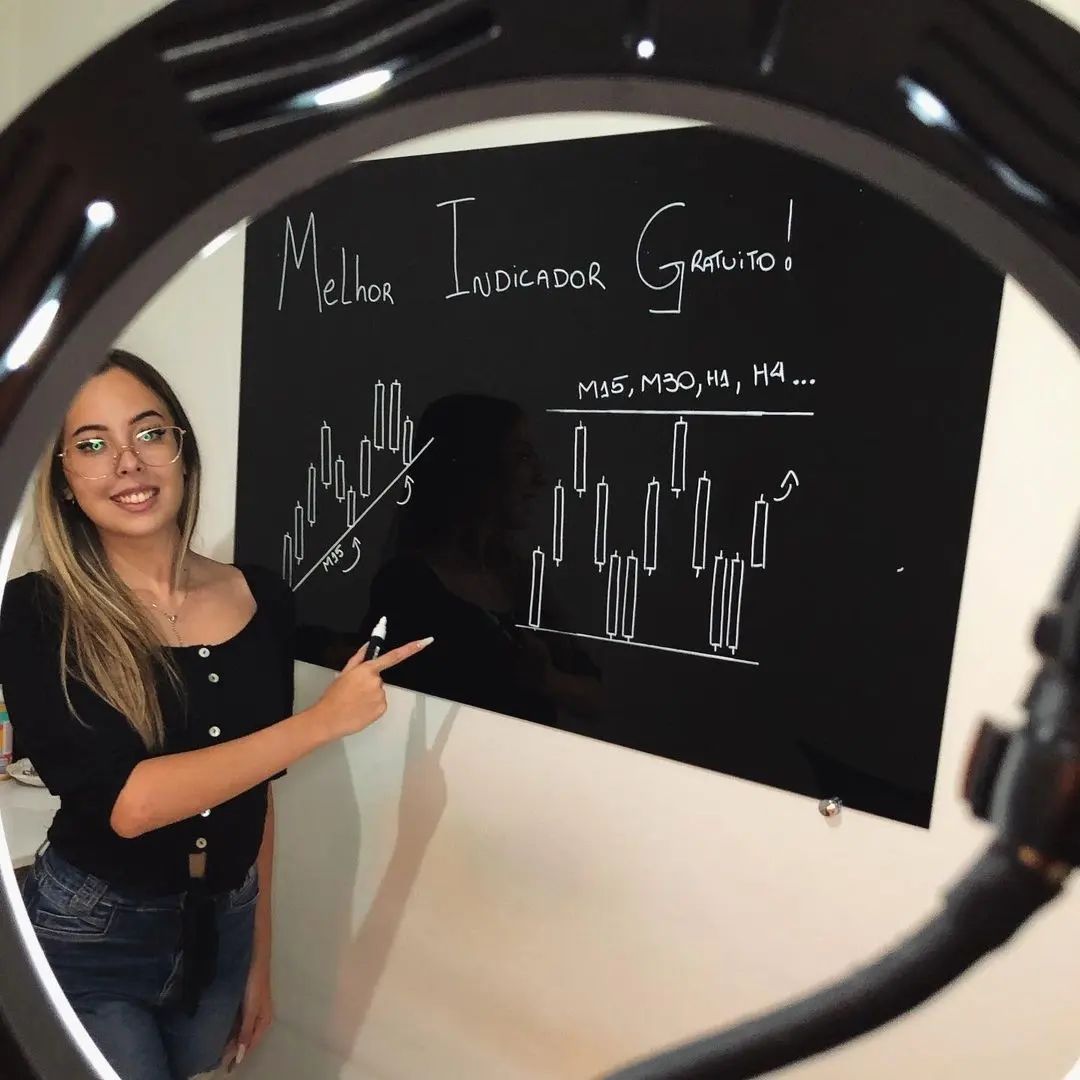 Melhor Indicador Gratuito!
M15, M30, H1, H4...
M15